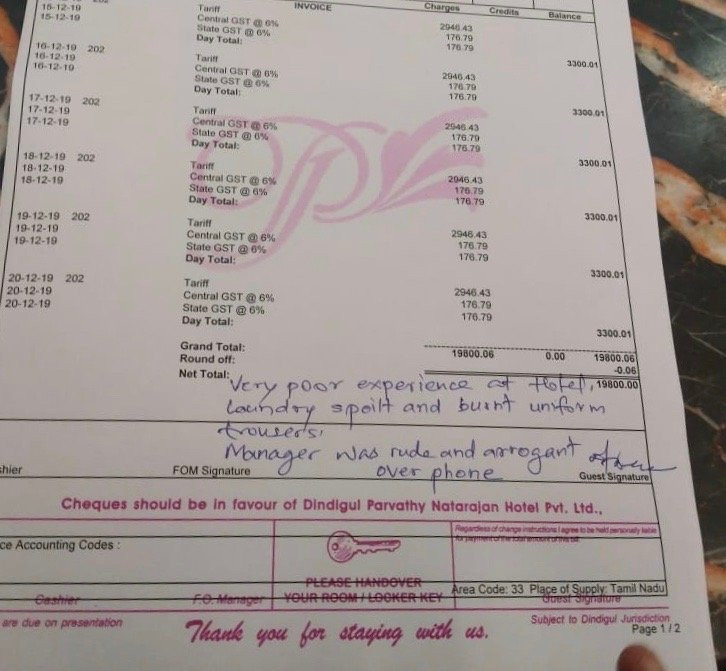 INVOICE Charges Credits Balance
15-12-19 Tariff 2946.43
15-12-19 Central GST @ 6% 176.79
State GST @ 6% 176.79
Day Total: 3300.01
16-12-19 202 Tariff 2946.43
16-12-19 Central GST @ 6% 176.79
16-12-19 State GST @ 6% 176.79
Day Total: 3300.01
17-12-19 202 Tariff 2946.43
17-12-19 Central GST @ 6% 176.79
17-12-19 State GST @ 6% 176.79
Day Total: 3300.01
18-12-19 202 Tariff 2946.43
18-12-19 Central GST @ 6% 176.79
18-12-19 State GST @ 6% 176.79
Day Total: 3300.01
19-12-19 202 Tariff 2946.43
19-12-19 Central GST @ 6% 176.79
19-12-19 State GST @ 6% 176.79
Day Total: 3300.01
20-12-19 202 Tariff 2946.43
20-12-19 Central GST @ 6% 176.79
20-12-19 State GST @ 6% 176.79
Day Total: 3300.01
Grand Total: 19800.06 0.00 19800.06
Round off: -0.06
Net Total: 19800.00
Very poor experience at Hotel,
Laundry spoilt and burnt uniform
trousers.
Manager was rude and arrogant
over phone
hier FOM Signature Guest Signature
Cheques should be in favour of Dindigul Parvathy Natarajan Hotel Pvt. Ltd.,
Regardless of change instructions I agree to be held personally liable
for payment of the total amount of this bill.
ce Accounting Codes :
PLEASE HANDOVER
YOUR ROOM / LOCKER KEY
Area Code: 33 Place of Supply: Tamil Nadu
Cashier F.O. Manager Guest Signature
are due on presentation
Thank you for staying with us.
Subject to Dindigul Jurisdiction
Page 1 / 2